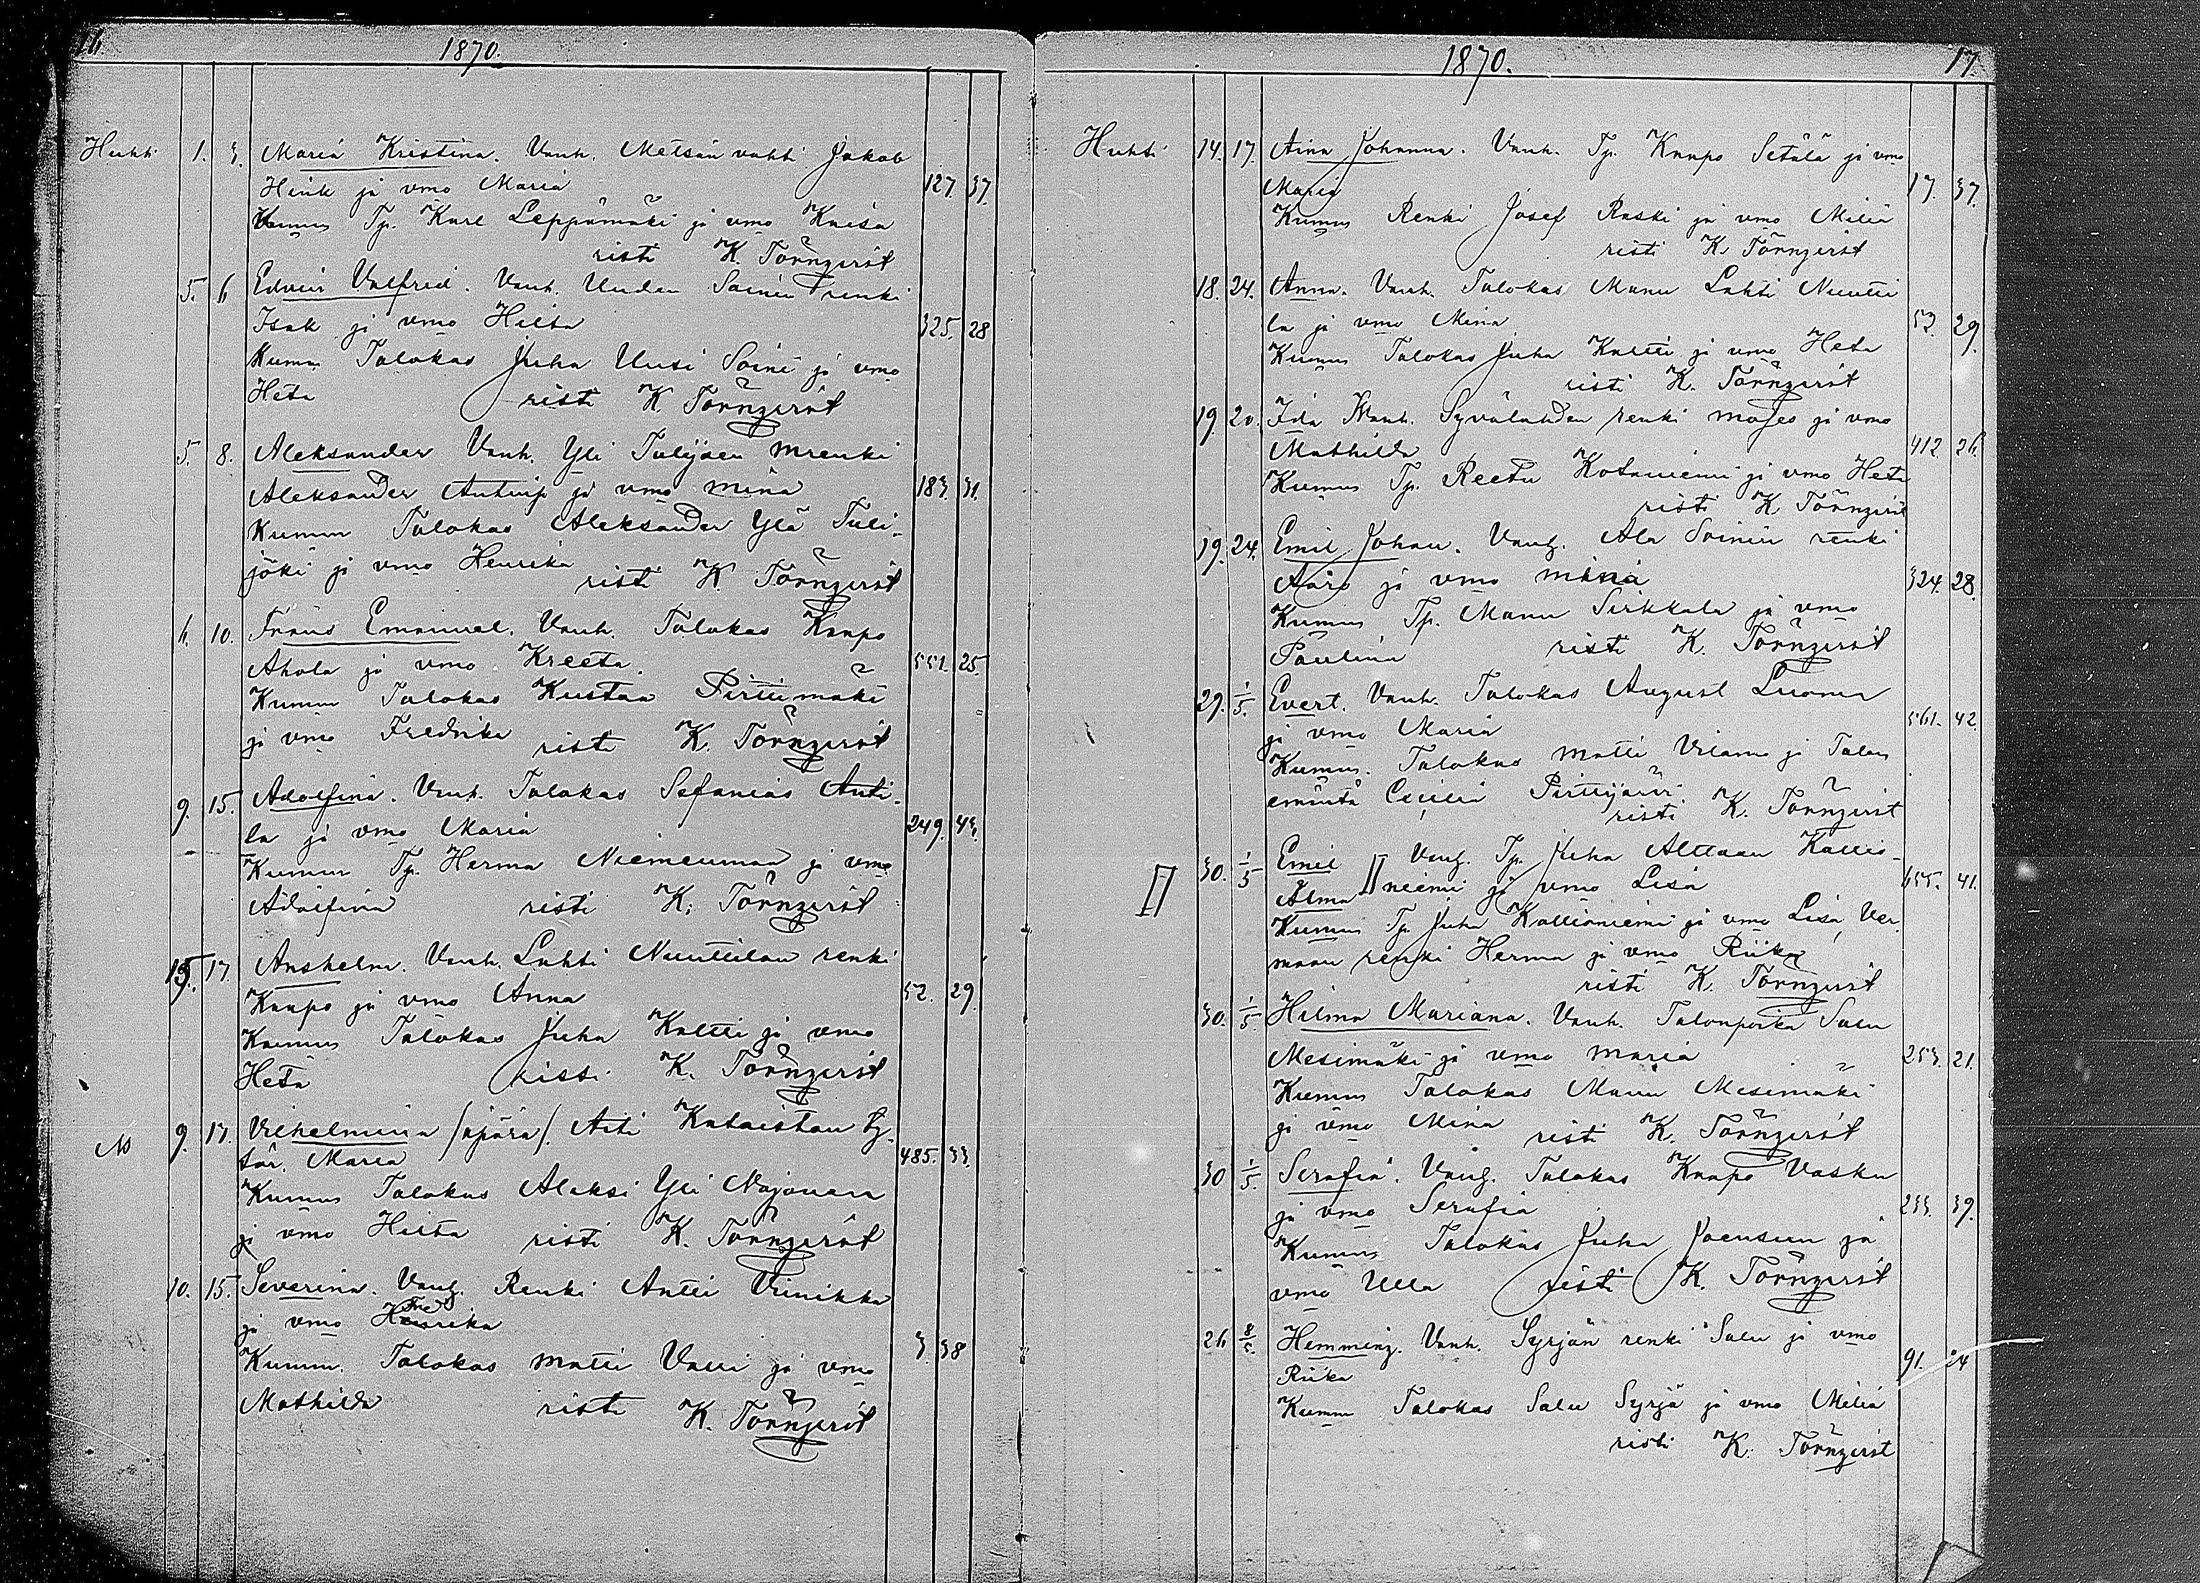 16
1870.
Huhti 1. 3. Maria Kristina. Vanh. Metsän vahti Jakob
Hink ja vmo Maria 127. 37.
Kumm Tp. Karl Leppämäki ja vmo Kaisa
risti K. Törnqvist
5. 6 Edvin Valfrid. Vanh. Uuden Soinin renki
Isak ja vmo Hilta 325. 28
Kumm Talokas Juha Uusi Soini ja vmo
Heta risti K. Törnqvist
5. 8. Aleksander Vanh. Yli Tulijoen renki
Aleksander ja vmo Mina 183. 31.
Kumm Talokas Aleksander Ylä Tuli-
joki ja vmo Henrika risti K. Törnqvist
6. 10. Frans Emanuel. Vanh. Talokas Kaapo
Ahola ja vmo Kreeta 551. 25
Kumm Talokas Kustaa Pirttimäki
ja vmo Fredrika risti K. Törnqvist
9. 15. Adolfina. Vanh. Talokas Sefanias Anti-
la ja vmo Maria 249. 43.
Kumm Tp. Herma Niemenmaa ja vmo
Adolfina risti K. Törnqvist
15. 17 Anshelm. Vanh. Lahti Nuuttilan renki
Kaapo ja vmo Anna 52. 29.
Kumm Talokas Juha Kaltti ja vmo
Heta risti K. Törnqvist
9. 17. Vilhelmina /äpärä/. Äiti Kataistan ty-
tär. Maria 485. 33.
Kumm Talokas Aleksi Yli Nojonen
ja vmo Hilta risti K. Törnqvist
10. 15. Severina. Vanh. Renki Antti Viinikka
ja vmo Fredrika 3. 38
Kumm. Talokas Matti Valli ja vmo
Mathilda risti K. Törnqvist
1870.
17.
Huhti 14. 17. Aina Johanna. Vanh. Tp. Kaapo Setälä ja vmo
Maria 17. 37.
Kumm Renki Josef Raski ja vmo Milia
risti K. Törnqvist
18. 24. Anna. Vanh. Talokas Manu Lahti Nuutti
la ja vmo Mina 52. 29.
Kumm Talokas Juha Kaltti ja vmo Heta
risti K. Törnqvist
19. 20. Ida Vanh. Syvälahden renki Moses ja vmo
Mathilda 412 26.
Kumm Tp. Reetu Kotaniemi ja vmo Heta
risti K. Törnqvist
19. 24. Emil Johan. Vanh. Ala Soinin renki
Aaro ja vmo Mina 324. 28.
Kumm Tp. Manu Sirkkala ja vmo
Paulina risti K. Törnqvist
29. 1/5. Evert. Vanh. Talokas August Luoma
ja vmo Maria 561. 42.
Kumm. Talokas Matti Vilamo ja Talon
emäntä Cecilia Pirttijärvi. risti K. Törnqvist
30. 1/5 Emil Vanh. Tp. Juha Alttaan Kallio-
Alma niemi ja vmo Lisa 655. 41.
Kumm Tp. Juha Kallioniemi ja vmo Lisa, Ver-
maan renki Herma ja vmo Riika
risti K. Törnqvist
30. 1/5. Hilma Mariana. Vanh. Talonpoika Salu
Mesimäki ja vmo Maria 253. 21.
Kumm Talokas Manu Mesimäki
ja vmo Mina risti K. Törnqvist
30 1/5. Serafia. Vanh. Talokas Kaapo Vasku
ja vmo Serafia 233. 39.
Kumm Talokas Juha Joensuu ja
vmo Ulla risti K. Törnqvist
26 8/5. Hemming. Vanh. Syrjän renki Salu ja vmo
Riika 91. 24
Kumm Talokas Salu Syrjä ja vmo Milia
risti K. Törnqvist